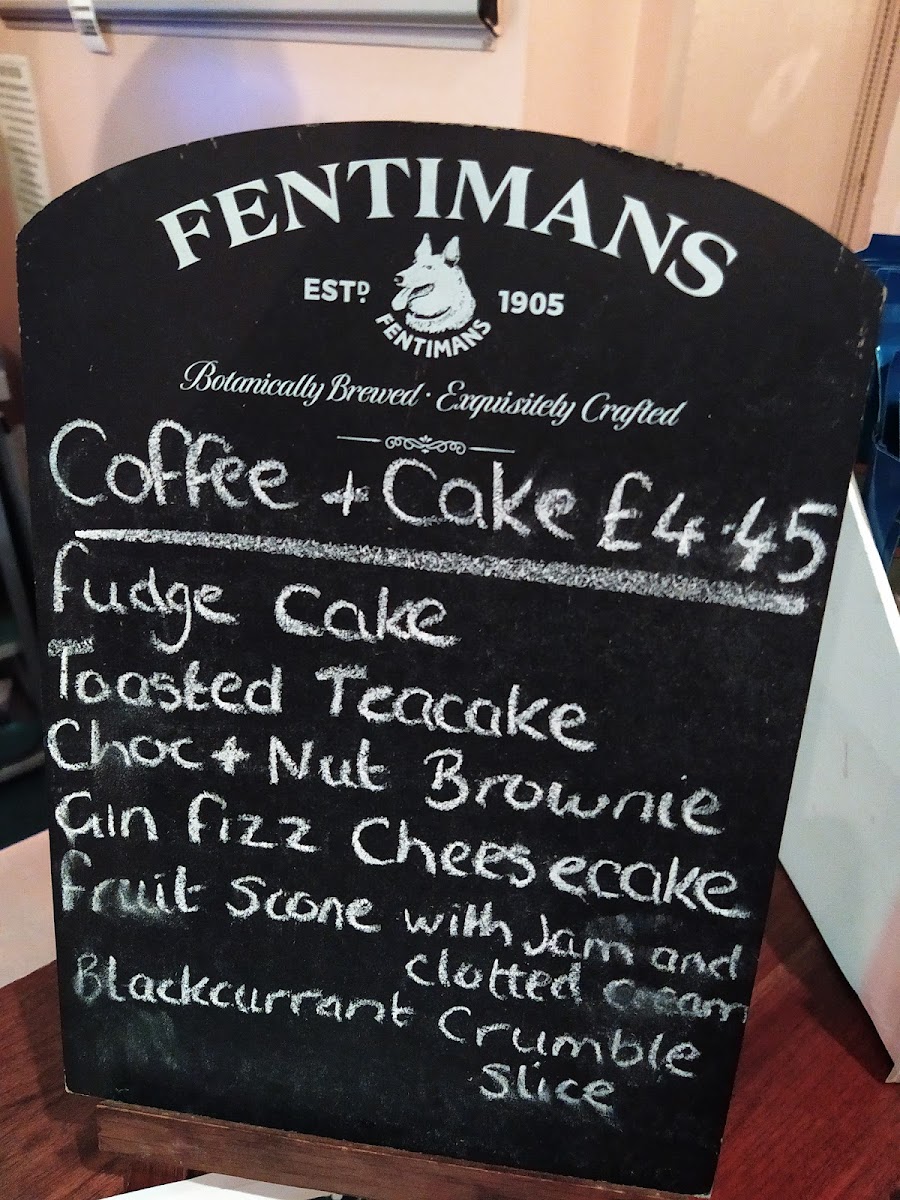 FENTIMANS
ESTD. 1905
FENTIMANS
Botanically Brewed · Exquisitely Crafted
Coffee + Cake £4.45
Fudge Cake
Toasted Teacake
Choc + Nut Brownie
Gin Fizz Cheesecake
Fruit Scone with Jam and
Clotted Cream
Blackcurrant Crumble
Slice